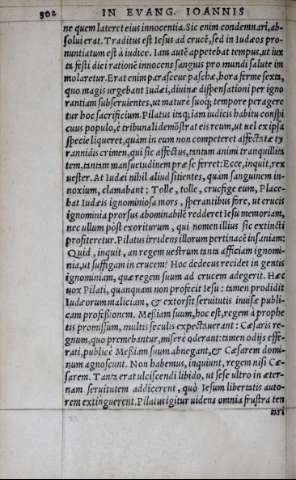 302 IN EVANG. IOANNIS
ne quem lateret eius innocentia. Sic enim condemnari, ab-
solui erat. Traditus est Iesus ad crucē, sed in Iudæos pro-
nuntiatum est à iudice. Iam autē appetebat tempus, ut iux
ta festi diei rationē innocens sanguis pro mundi salute im
molaretur. Erat enim parasceue paschæ, hora ferme sexta,
quo magis urgebant Iudæi, diuinæ dispensationi per igno
rantiam subseruientes, ut mature suoq; tempore peragere
tur hoc sacrificium. Pilatus inq; iam iudicis habitu conspi
cuus populo, è tribunali demōstrat eis reum, ut uel ex ipsa
specie liqueret, quàm in eum non competeret affectatæ ty
rannidis crimen, qui sic affectus, tantam animi tranquillita
tem, tantam mansuetudinem præ se ferret: Ecce, inquit, rex
uester. At Iudæi nihil aliud sitientes, quàm sanguinem in-
noxium, clamabant: Tolle, tolle, crucifige eum, Place-
bat Iudæis ignominiosa mors, sperantibus fore, ut crucis
ignominia prorsus abominabilē redderet Iesu memoriam,
nec ullum pòst exoriturum, qui nomen illius sic extincti
profiteretur. Pilatus irridens illorum pertinacē insaniam:
Quid, inquit, an regem uestrum tanta afficiam ignomi-
nia, ut suffigam in crucem? Hoc dedecus recidet in gentis
ignominiam, quæ regem suum ad crucem adegerit. Hæc
uox Pilati, quanquam non profecit Iesu: tamen prodidit
Iudæorum maliciam, & extorsit seruitutis inuisæ publi-
cam professionem. Messiam suum, hoc est, regem à prophe
tis promissum, multis seculis expectauerant: Cæsaris re-
gnum, quo premebantur, misere oderant: tamen odijs effe-
rati, publicè Messiam suum abnegant, & Cæsarem domi-
num agnoscunt. Non habemus, inquiunt, regem nisi Cæ-
sarem. Tanta erat ulciscendi libido, ut sese ultro in æter-
nam seruitutem addicerent, quò Iesum libertatis auto-
rem extinguerent. Pilatus igitur uidens omnia frustra ten
tari